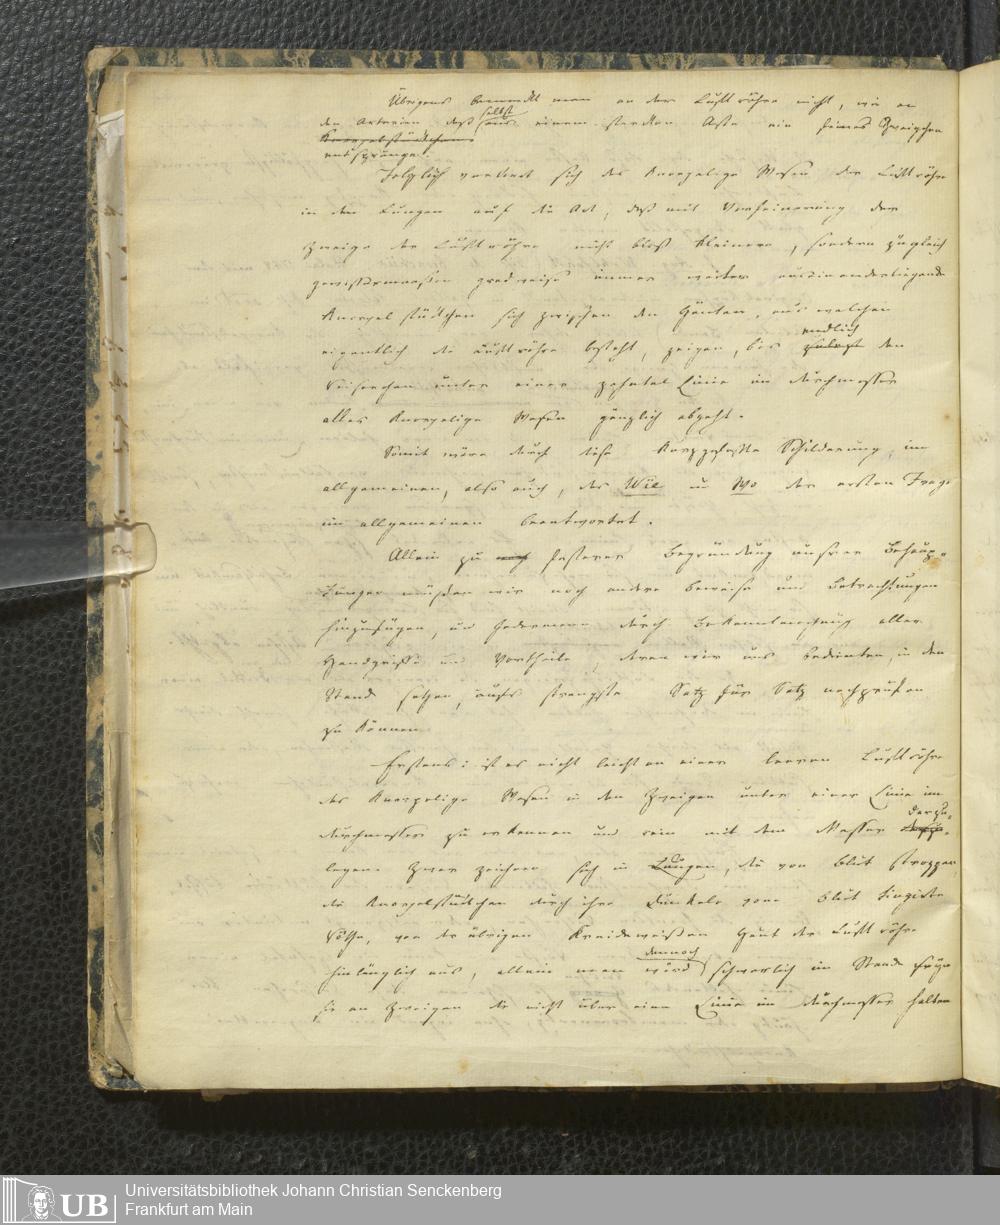 Übrigens bemerkt man an der Luftröhre nicht, wie an
den Arterien daß selbst aus einem starken Aste ein feines Zweigchen
Knorpelstückchens
entspränge.
Folglich verliert sich das Knorpelige Wesen der Luftröhre
in den Lungen auf die Art, daß mit Verfeinerung der
Zweige der Luftröhre nicht bloß kleinere, sondern zugleich
gewissermaaßen gradweise immer weiter auseinanderliegende
Knorpelstückchen sich zwischen den Häuten, aus welchen
eigentlich die Luftröhre besteht, zeigen, bis endlich zuletzt den
Reiserchen unter einer zehntel Linie im Durchmesser
alles Knorpelige Wesen gänzlich abgeht.
Somit wäre durch diese Kurzgefaßte Schilderung im
allgemeinen, also auch, das Wie u Wo der ersten Frage
im allgemeinen beantwortet.
Allein zu noch festerer Begründung unsrer Behaup-
tungen müssen wir noch andere Beweise und Betrachtungen
hinzufügen, und Jedermann durch Bekanntmachung aller
Handgriffe und Vortheile, deren wir uns bedienten, in den
Stand setzen, aufs strengste Satz für Satz nachprüfen
zu können.
Erstens: ist es nicht leicht an einer leeren Luftröhre
das Knorpelige Wesen in den Zweigen unter einer Linie im
Durchmesser zu erkennen und rein mit dem Messer darzu-
legen. Zwar zeichnen sich in Lungen, die von Blut strozzen,
die Knorpelstückchen durch ihre dunkele vom Blut tingirte
Röthe, von der übrigen Kreideweißen Haut der Luftröhre
hinlänglich aus, allein man wird dennoch schwerlich im Stande seyn
sie an Zweigen die nicht über eine Linie im Durchmesser halten
Universitätsbibliothek Johann Christian Senckenberg
Frankfurt am Main
UB